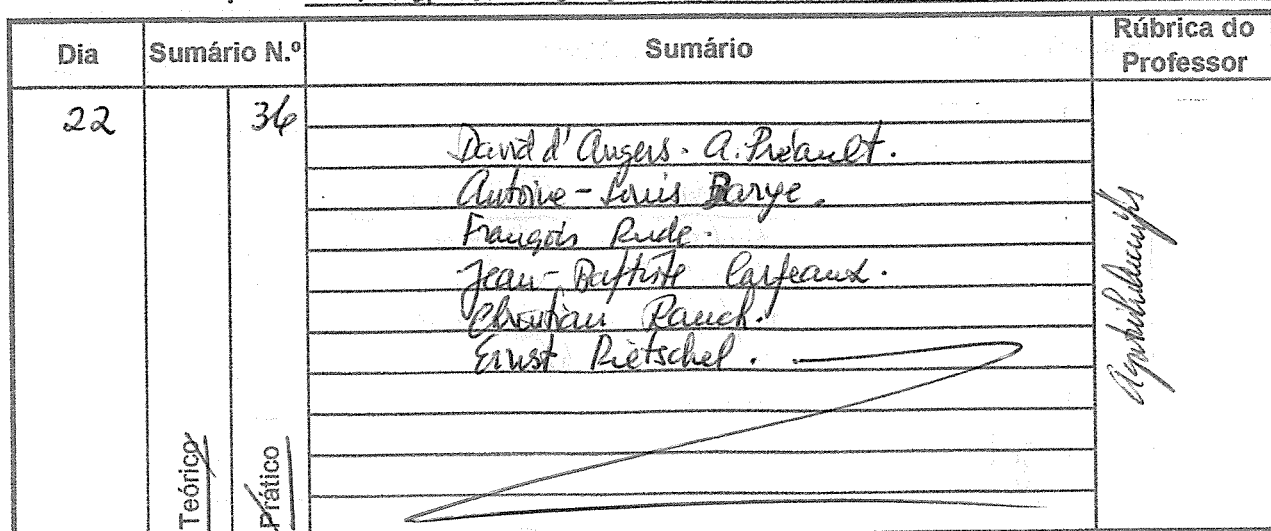 Dia
Sumário N.º
Sumário
Rúbrica do
Professor
22
36
David d'Angers. A. Préault.
Antoine-Louis Barye.
François Rude.
Jean-Baptiste Carpeaux.
Christian Rauch.
Ernst Rietschel.
Teórico
Prático